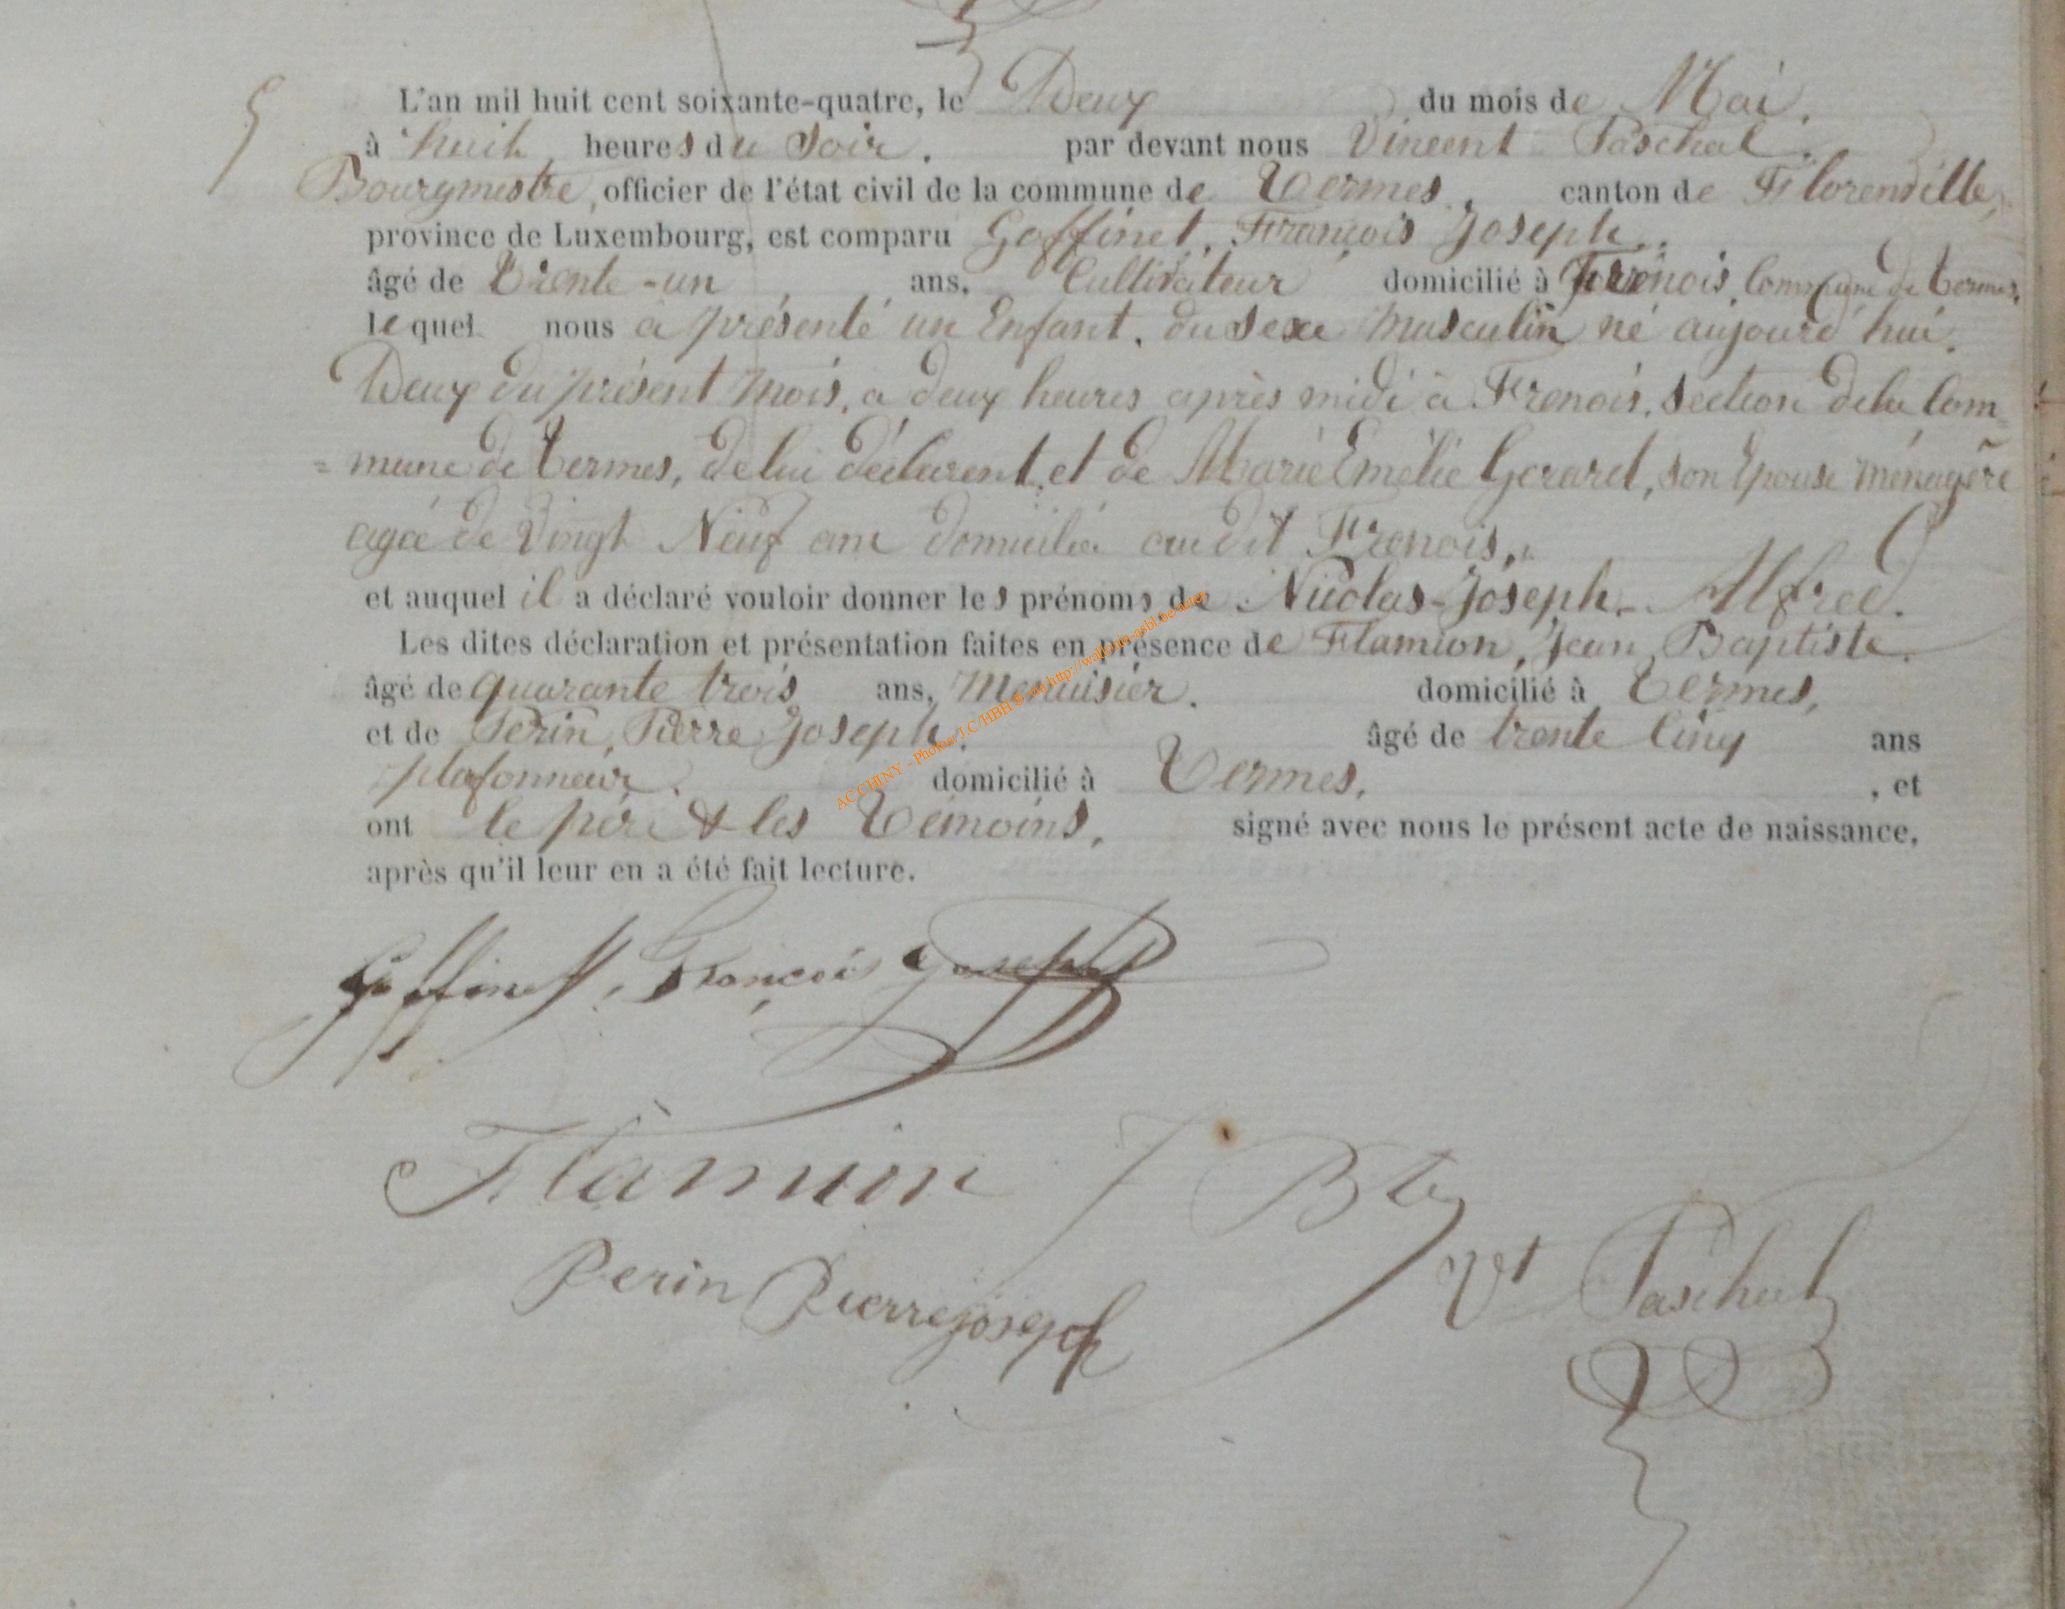 5
L'an mil huit cent soixante-quatre, le Deux du mois de Mai,
à huit heures du Soir. par devant nous Vincent Paschal,
Bourgmestre, officier de l'état civil de la commune de Termes, canton de Florenville,
province de Luxembourg, est comparu Goffinet, François Joseph,
âgé de trente-un ans, Cultivateur domicilié à Frenois, Commune de termes,
lequel nous a présenté un Enfant, du sexe masculin né aujourd'hui
Deux du présent mois, a deux heures après midi à Frenois, Section de la Com
= mune de termes, de lui déclarent, et de Marie Emélie Gerard, son Epouse ménagère
agée de Vingt Neuf ans domiciliée au dit Frenois,
et auquel il a déclaré vouloir donner les prénoms de Nicolas-Joseph-Alfred.
Les dites déclaration et présentation faites en présence de Flamion, Jean Baptiste.
âgé de quarante trois ans, Menuisier. domicilié à Termes,
et de Perin, Pierre Joseph, âgé de trente Cinq ans
plafonneur. domicilié à Termes, , et
ont le père & les Témoins, signé avec nous le présent acte de naissance,
après qu'il leur en a été fait lecture.
Goffinet, François Joseph
Flamion J Bte
Perin Pierre joseph
Vt Paschal